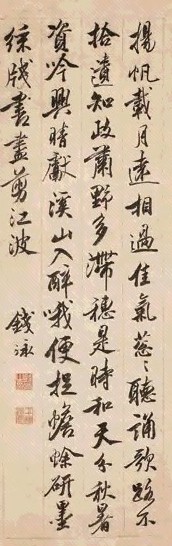 揚帆載月遠相過佳氣葱〻聽誦歌路不
拾遺知政肅野多滯穗是時和天分秋暑
資吟興晴獻溪山入醉哦便捉蟾蜍研墨
綵牋書盡剪江波
錢泳